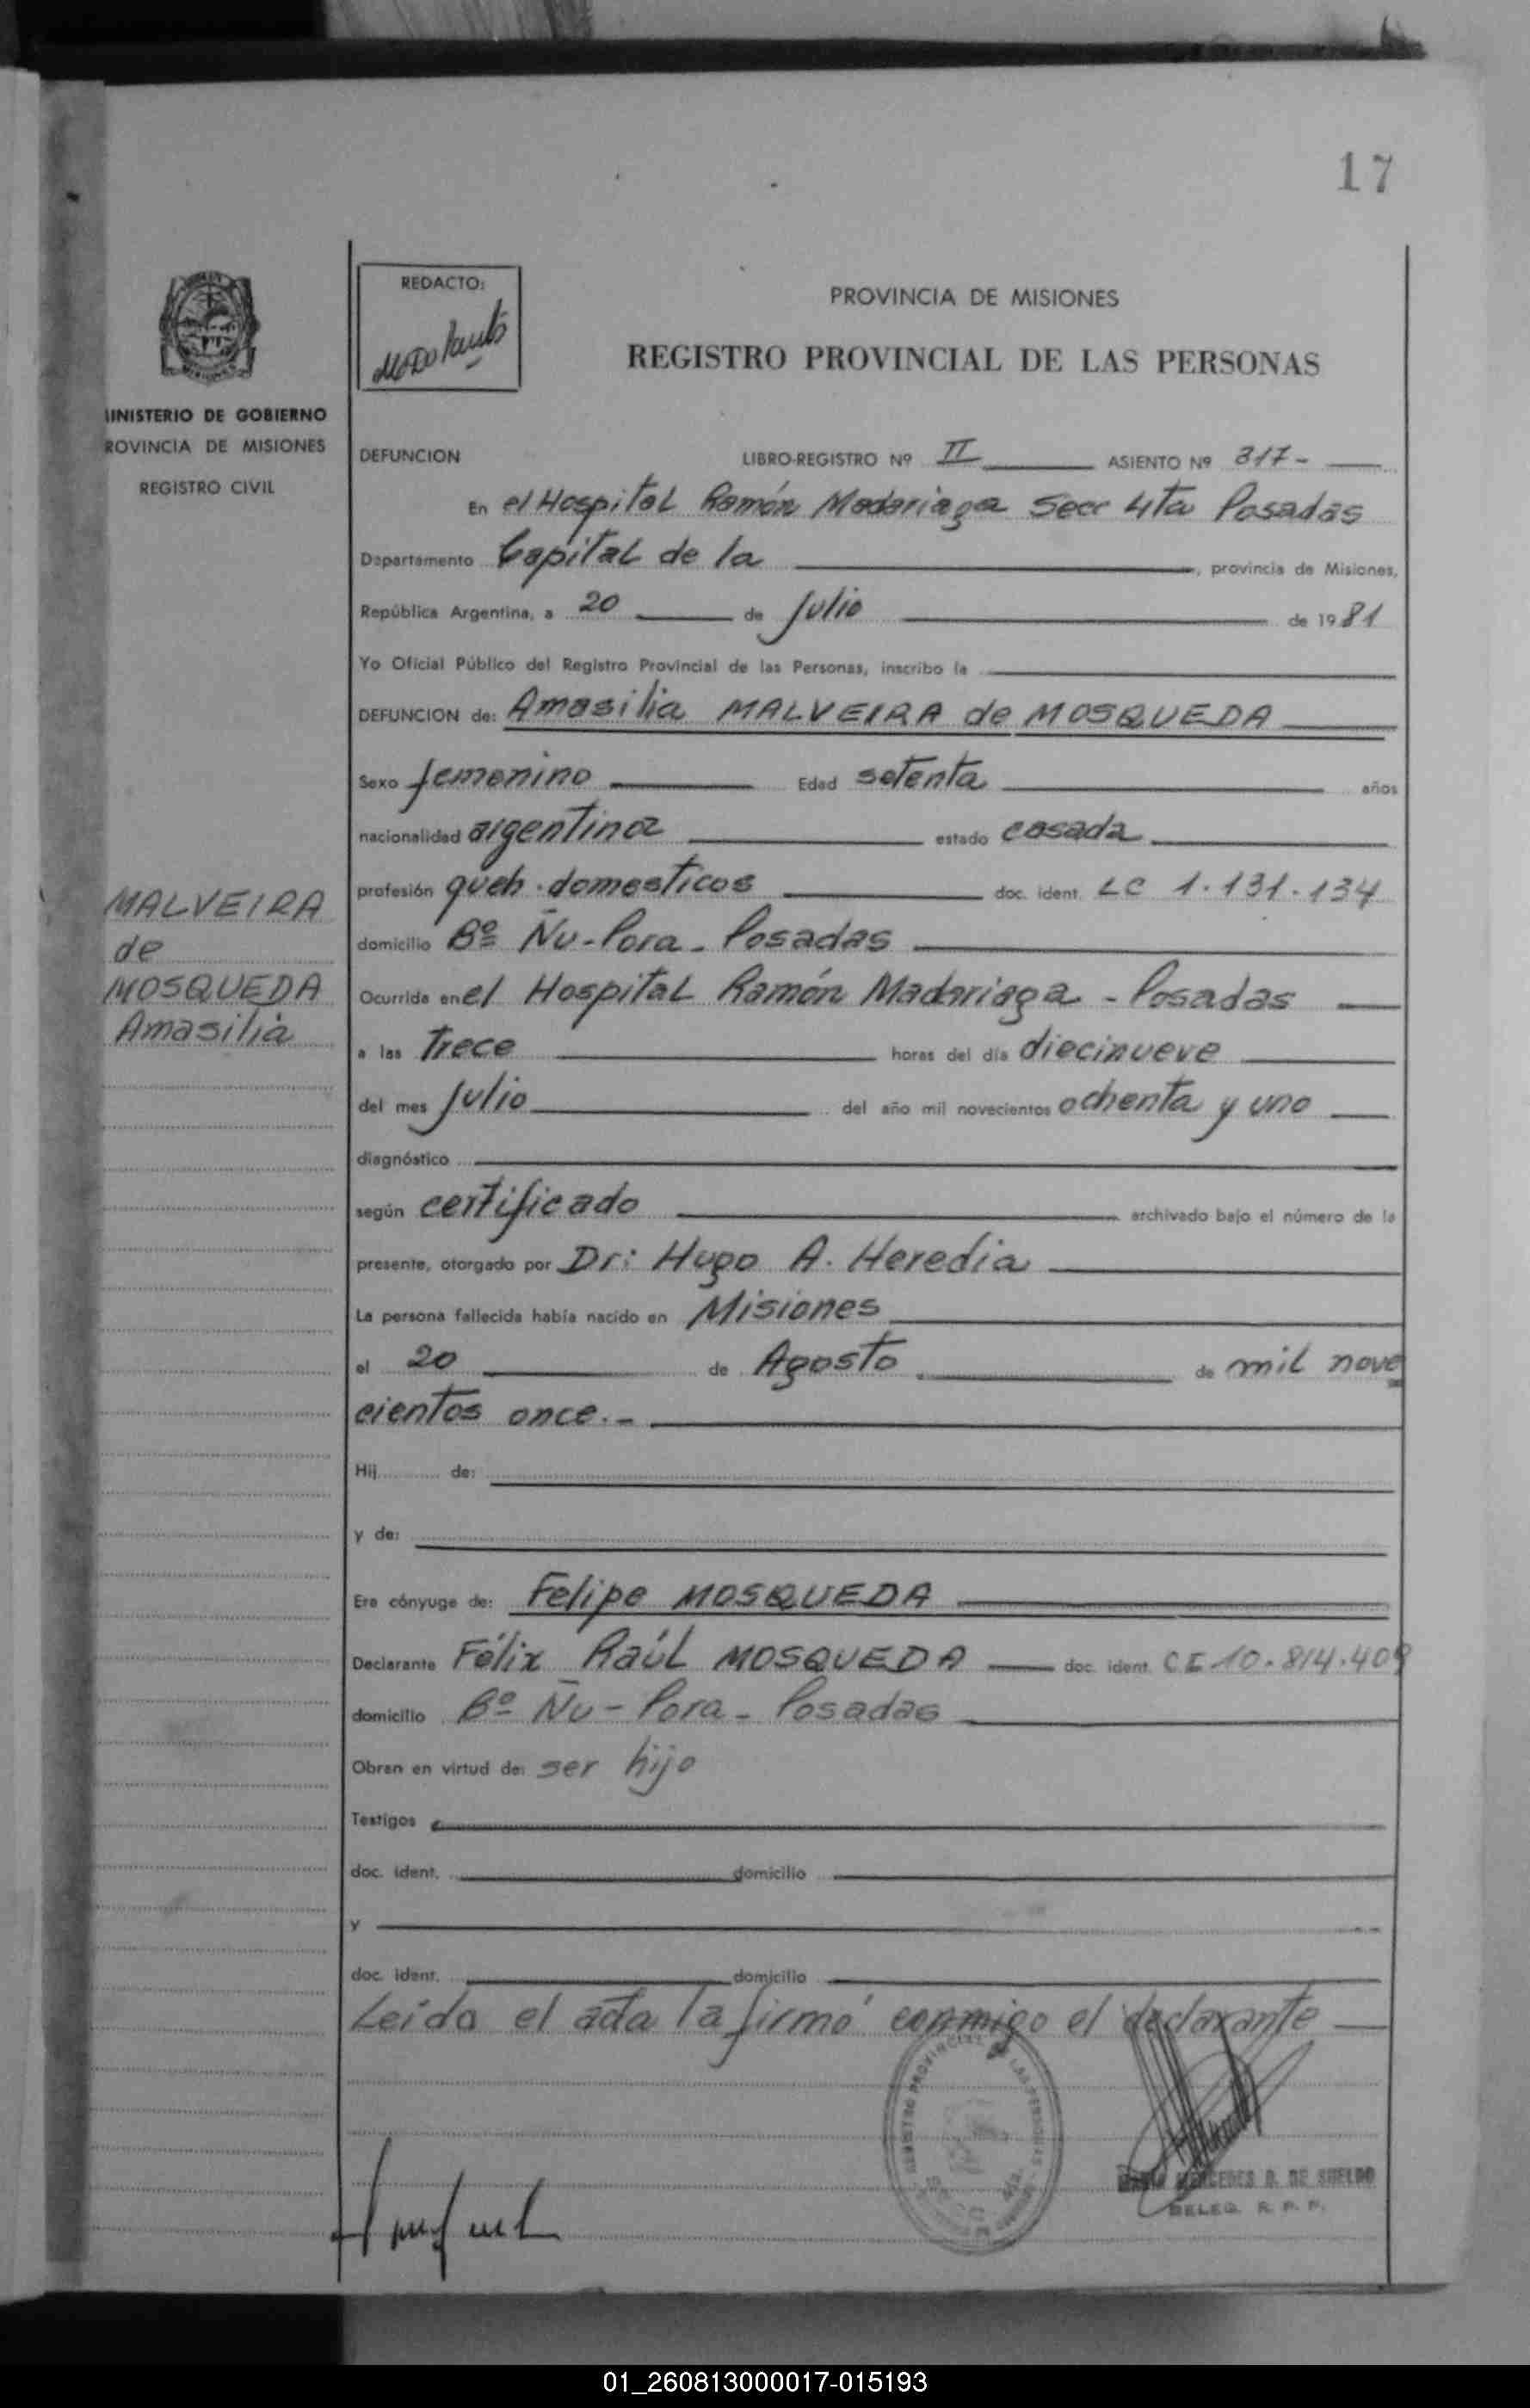 17
REDACTO:
PROVINCIA DE MISIONES
REGISTRO PROVINCIAL DE LAS PERSONAS
MINISTERIO DE GOBIERNO
ROVINCIA DE MISIONES
REGISTRO CIVIL
DEFUNCION LIBRO-REGISTRO Nº II ASIENTO Nº 317-
En el Hospital Ramón Madariaga Secc 4ta Posadas
Departamento Capital de la , provincia de Misiones,
República Argentina, a 20 de Julio de 1981
Yo Oficial Público del Registro Provincial de las Personas, inscribo la
DEFUNCION de: Amasilia MALVEIRA de MOSQUEDA
Sexo femenino Edad setenta años
nacionalidad argentina estado casada
profesión queh. domesticos doc. ident. LC 1.131.134
domicilio Bº Ñu-Pora - Posadas
Ocurrida en el Hospital Ramón Madariaga - Posadas
a las Trece horas del día diecinueve
del mes Julio del año mil novecientos ochenta y uno
diagnóstico
según certificado archivado bajo el número de la
presente, otorgado por Dr: Hugo A. Heredia
La persona fallecida había nacido en Misiones
el 20 de Agosto de mil nove
cientos once.-
Hij de:
y de:
Era cónyuge de: Felipe MOSQUEDA
Declarante Félix Raúl MOSQUEDA doc. ident. CI 10.814.409
domicilio Bº Ñu-Pora - Posadas
Obran en virtud de: ser hijo
Testigos
doc. ident. domicilio
y
doc. ident. domicilio
Leída el acta la firmó conmigo el declarante
MALVEIRA
de
MOSQUEDA
Amasilia
REGISTRO PROVINCIAL DE LAS PERSONAS
MERCEDES D. DE
DELEG. R. P. P.
01_260813000017-015193